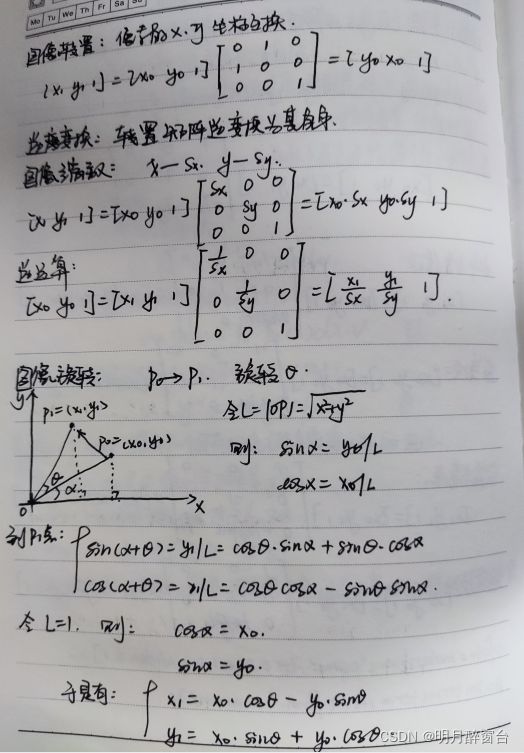 Mo Tu We Th Fr Sa Su
图像转置：像素的x、y坐标互换.
[x₁ y₁ 1] = [x₀ y₀ 1] [0 1 0; 1 0 0; 0 0 1] = [y₀ x₀ 1]
逆变换：转置矩阵逆变换为其自身.
图像缩放： x—Sx. y—Sy.
[x₁ y₁ 1] = [x₀ y₀ 1] [Sx 0 0; 0 Sy 0; 0 0 1] = [x₀·Sx y₀·Sy 1]
逆运算：
[x₀ y₀ 1] = [x₁ y₁ 1] [1/Sx 0 0; 0 1/Sy 0; 0 0 1] = [x₁/Sx y₁/Sy 1].
图像旋转： P₀→P₁. 旋转θ.
y
P₁=(x₁,y₁)
P₀=(x₀,y₀)
θ
α
0
x
令L=|OP|=√x²+y²
则： sinα = y₀/L
cosα = x₀/L
到P₁点： sin(α+θ) = y₁/L = cosθ·sinα + sinθ·cosα
cos(α+θ) = x₁/L = cosθcosα − sinθsinα.
令L=1. 则： cosα = x₀.
sinα = y₀.
于是有： x₁ = x₀·cosθ − y₀·sinθ
y₁ = x₀·sinθ + y₀·cosθ
CSDN @明月醉窗台